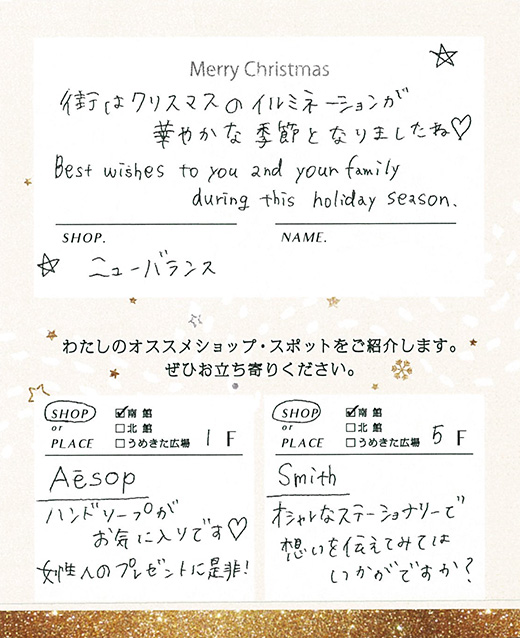 Merry Christmas
街はクリスマスのイルミネーションが
華やかな季節となりましたね♡
Best wishes to you and your family
during this holiday season.
SHOP.
NAME.
ニューバランス
わたしのオススメショップ・スポットをご紹介します。
ぜひお立ち寄りください。
SHOP
or
PLACE
☑南館
□北館
□うめきた広場
1 F
Aēsop
ハンドソープが
お気に入りです♡
女性人のプレゼントに是非!
SHOP
or
PLACE
☑南館
□北館
□うめきた広場
5 F
Smith
オシャレなステーショナリーで
想いを伝えてみては
いかがですか?